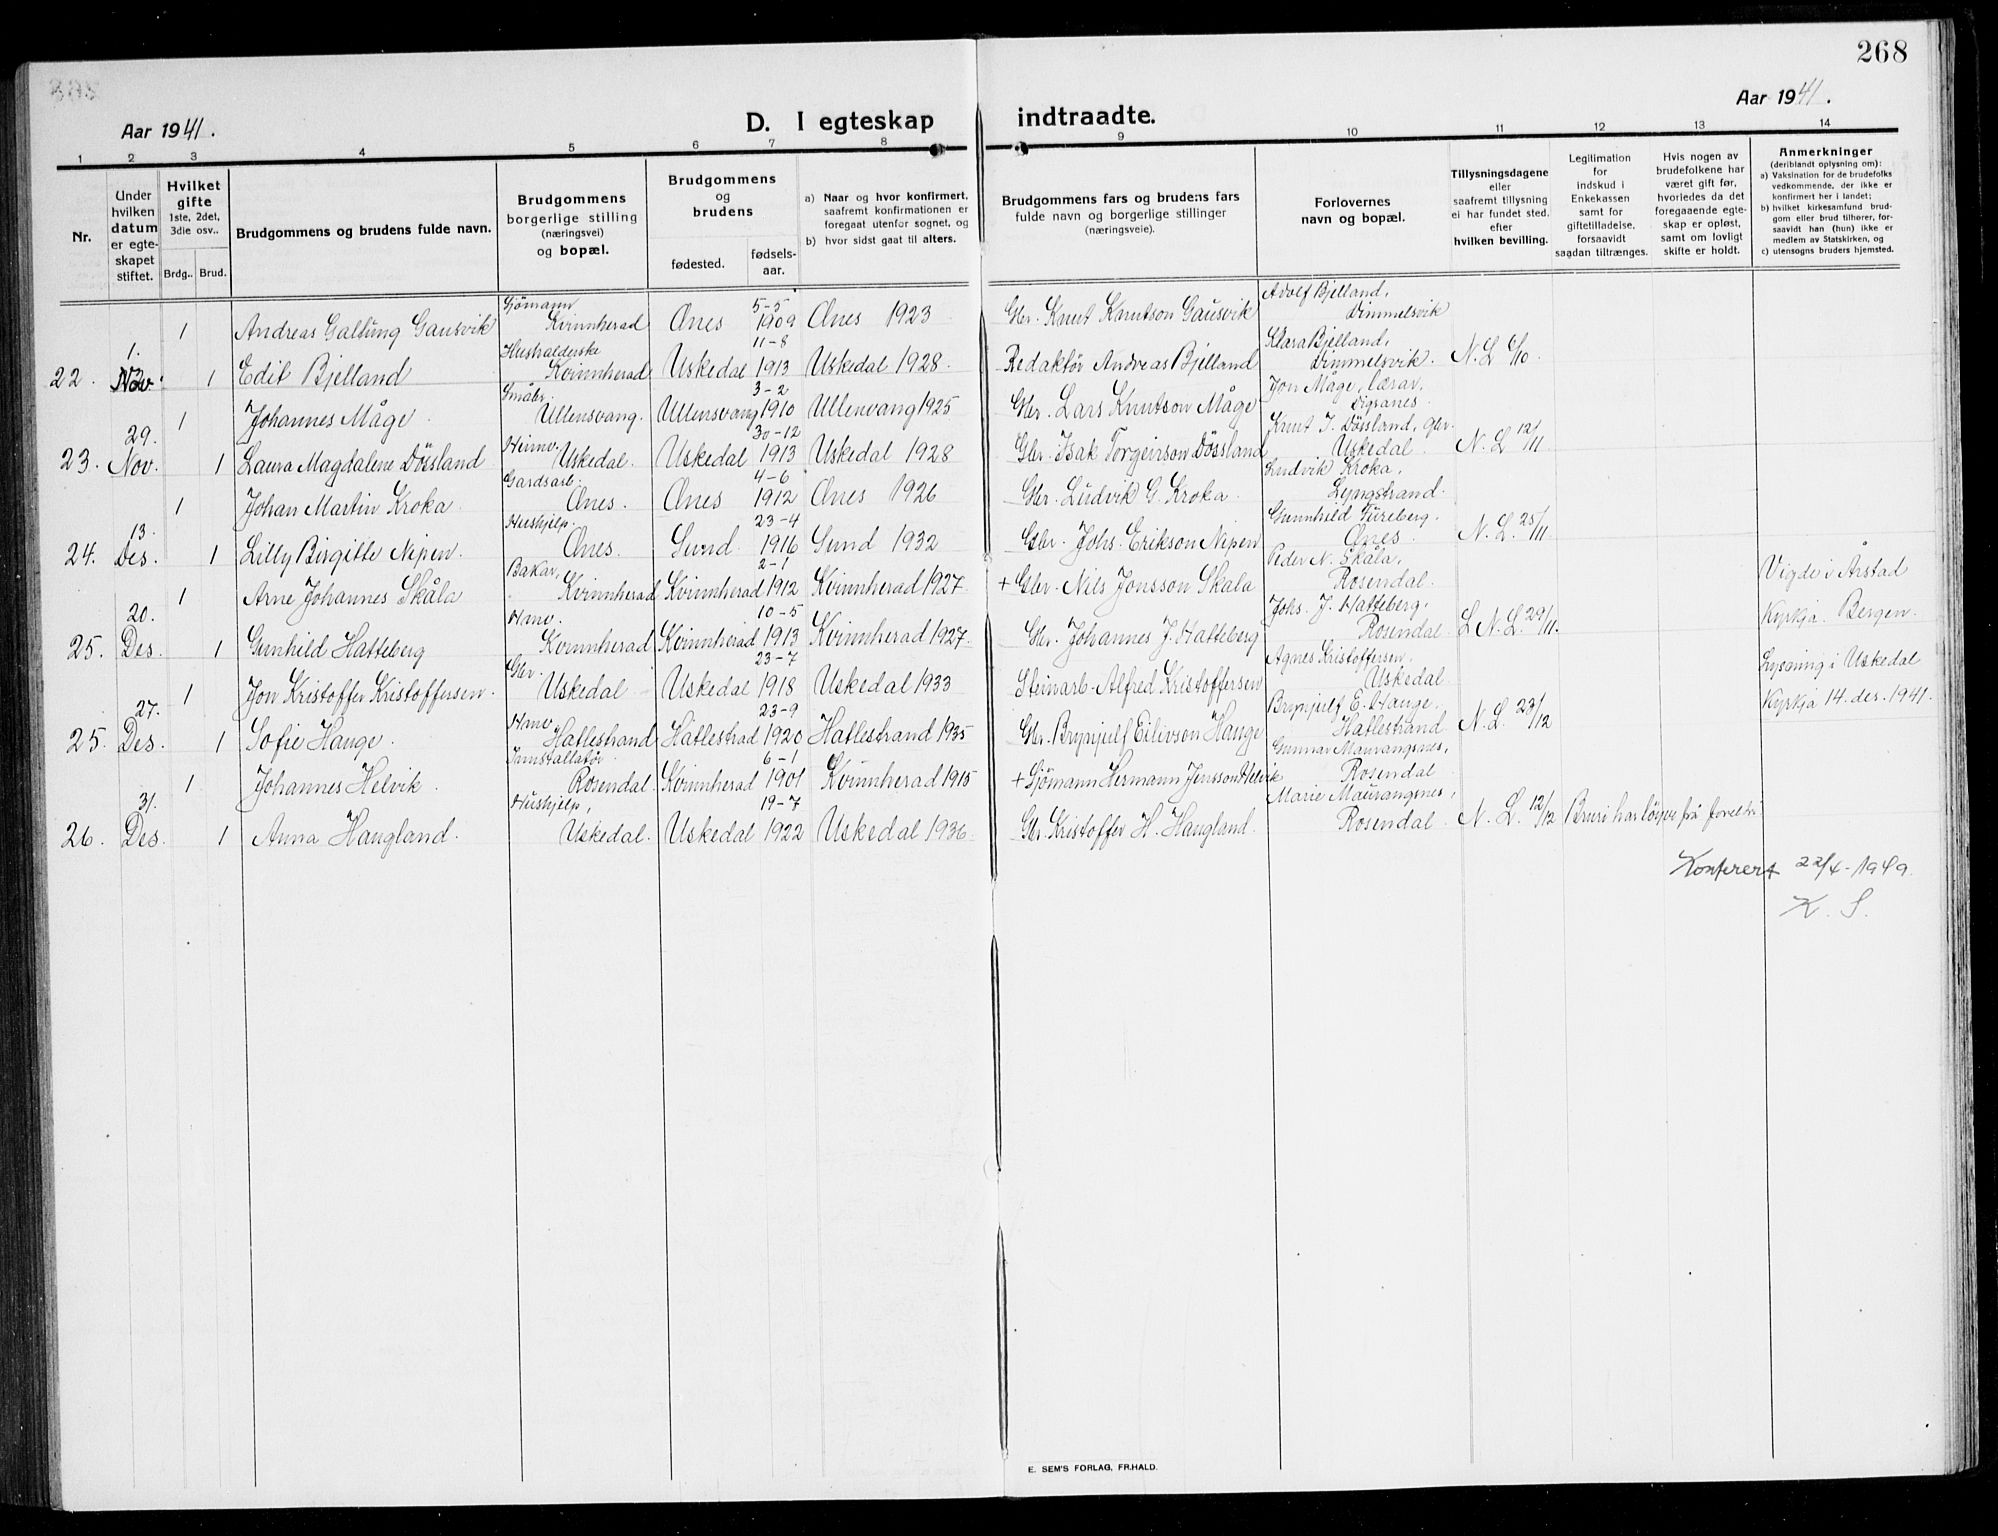 268
Aar 1941.
D. I egteskap indtraadte.
Aar 1941.
1 2 3 4 5 6 7 8 9 10 11 12 13 14
Nr.
Under hvilken datum er egteskapet stiftet.
Hvilket gifte 1ste, 2det, 3die osv..
Brdg.. Brud.
Brudgommens og brudens fulde navn.
Brudgommens borgerlige stilling (næringsvei) og bopæl.
Brudgommens og brudens
fødested. fødsels-aar.
a) Naar og hvor konfirmert, saafremt konfirmationen er foregaat utenfor sognet, og
b) hvor sidst gaat til alters.
Brudgommens fars og brudens fars fulde navn og borgerlige stillinger (næringsveie).
Forlovernes navn og bopæl.
Tillysningsdagene eller saafremt tillysning ei har fundet sted. efter hvilken bevilling.
Legitimation for indskud i Enkekassen samt for giftetilladelse, forsaavidt saadan tiltrænges.
Hvis nogen av brudefolkene har været gift før, hvorledes da det foregaaende egteskap er opløst, samt om lovligt skifte er holdt.
Anmerkninger (deriblandt oplysning om):
a) Vaksination for de brudefolks vedkommende, der ikke er konfirmert her i landet;
b) hvilket kirkesamfund brudgom eller brud tilhører, forsaavidt han (hun) ikke er medlem av Statskirken, og
c) utensogns bruders hjemsted.
1 Andreas Galtung Gausvik Sjømann Kvinnherad Ænes 5-5 1909 Ænes 1923 Gbr. Knut Knutson Gausvik Adolf Bjelland, Dimmelsvik
22. 1. Nov. 1 Edit Bjelland Hushalderske Kvinnherad Uskedal 11-8 1913 Uskedal 1928. Redaktør Andreas Bjelland Klara Bjelland, Dimmelsvik. N. L. 6/10.
1 Johannes Måge. Småbr. Ullensvang. Ullensvang 3-2 1910 Ullenvang 1925 Gbr. Lars Knutson Måge Jon Måge, lærar, Digranes.
23. 29. Nov. 1 Laura Magdalene Døssland Heimv. Uskedal. Uskedal 30-12 1913 Uskedal 1928 Gbr. Isak Torgeirson Døssland Knut I. Døssland, gbr. Uskedal. N. L. 12/11.
1 Johan Martin Kroka. Gardsarb. Ænes. Ænes 4-6 1912 Ænes 1926 Gbr. Ludvik G. Kroka. Ludvik Kroka, Lyngstrand.
24. 13. Des. 1 Lilly Birgitte Nipen. Hushjelp. Ænes. Sund. 23-4 1916 Sund 1932 Gbr. Johs. Erikson Nipen Gunnhild Tureberg, Ænes. N. L. 25/11
1 Arne Johannes Skåla Bakar, Kvinnherad Kvinnherad 2-1 1912 Kvinnherad 1927. + Gbr. Nils Jonsson Skåla Peder N. Skåla, Rosendal. Vigde i Årstad
25. 20. Des. 1 Gunhild Hatteberg Hmv. Kvinnherad Kvinnherad 10-5 1913 Kvinnherad 1927. Gbr. Johannes J. Hatteberg Johs. J. Hatteberg, Rosendal. L N. L. 29/11. Kyrkja Bergen.
1 Jon Kristoffer Kristoffersen. Gbr. Uskedal Uskedal 23-7 1918 Uskedal 1933 Steinarb. Alfred Kristoffersen Agnes Kristoffersen, Uskedal. Lysning i Uskedal
25. 27. Des. 1 Sofie Hauge. Hmv Hatlestrand Hatlestrad 23-9 1920 Hatlestrand 1935 Gbr. Brynjulf Eilivson Hauge Brynjulf E. Hauge, Hatlestrand N. L. 23/12 Kyrkja 14. des. 1941.
1 Johannes Helvik. Installatør Rosendal. Kvinnherad 6-1 1901 Kvinnherad 1915 + Sjømann Hermann Jensson Helvik Gunnar Maurangsnes, Rosendal
26. 31. Des. 1 Anna Haugland. Hushjelp, Uskedal. Uskedal 19-7 1922 Uskedal 1936. Gbr. Kristoffer H. Haugland. Marie Maurangsnes, Rosendal. N. L. 12/12 Bruri har løyve frå foreldri
Konferert 22/4-1949.
K. S.
E. SEM'S FORLAG, FR.HALD.